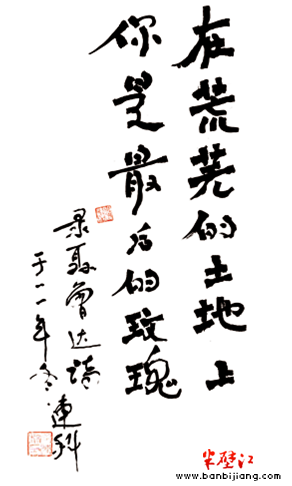 在荒芜的土地上
你是最后的玫瑰
录聂鲁达诗
于一一年冬連科
半壁江
www.banbijiang.com